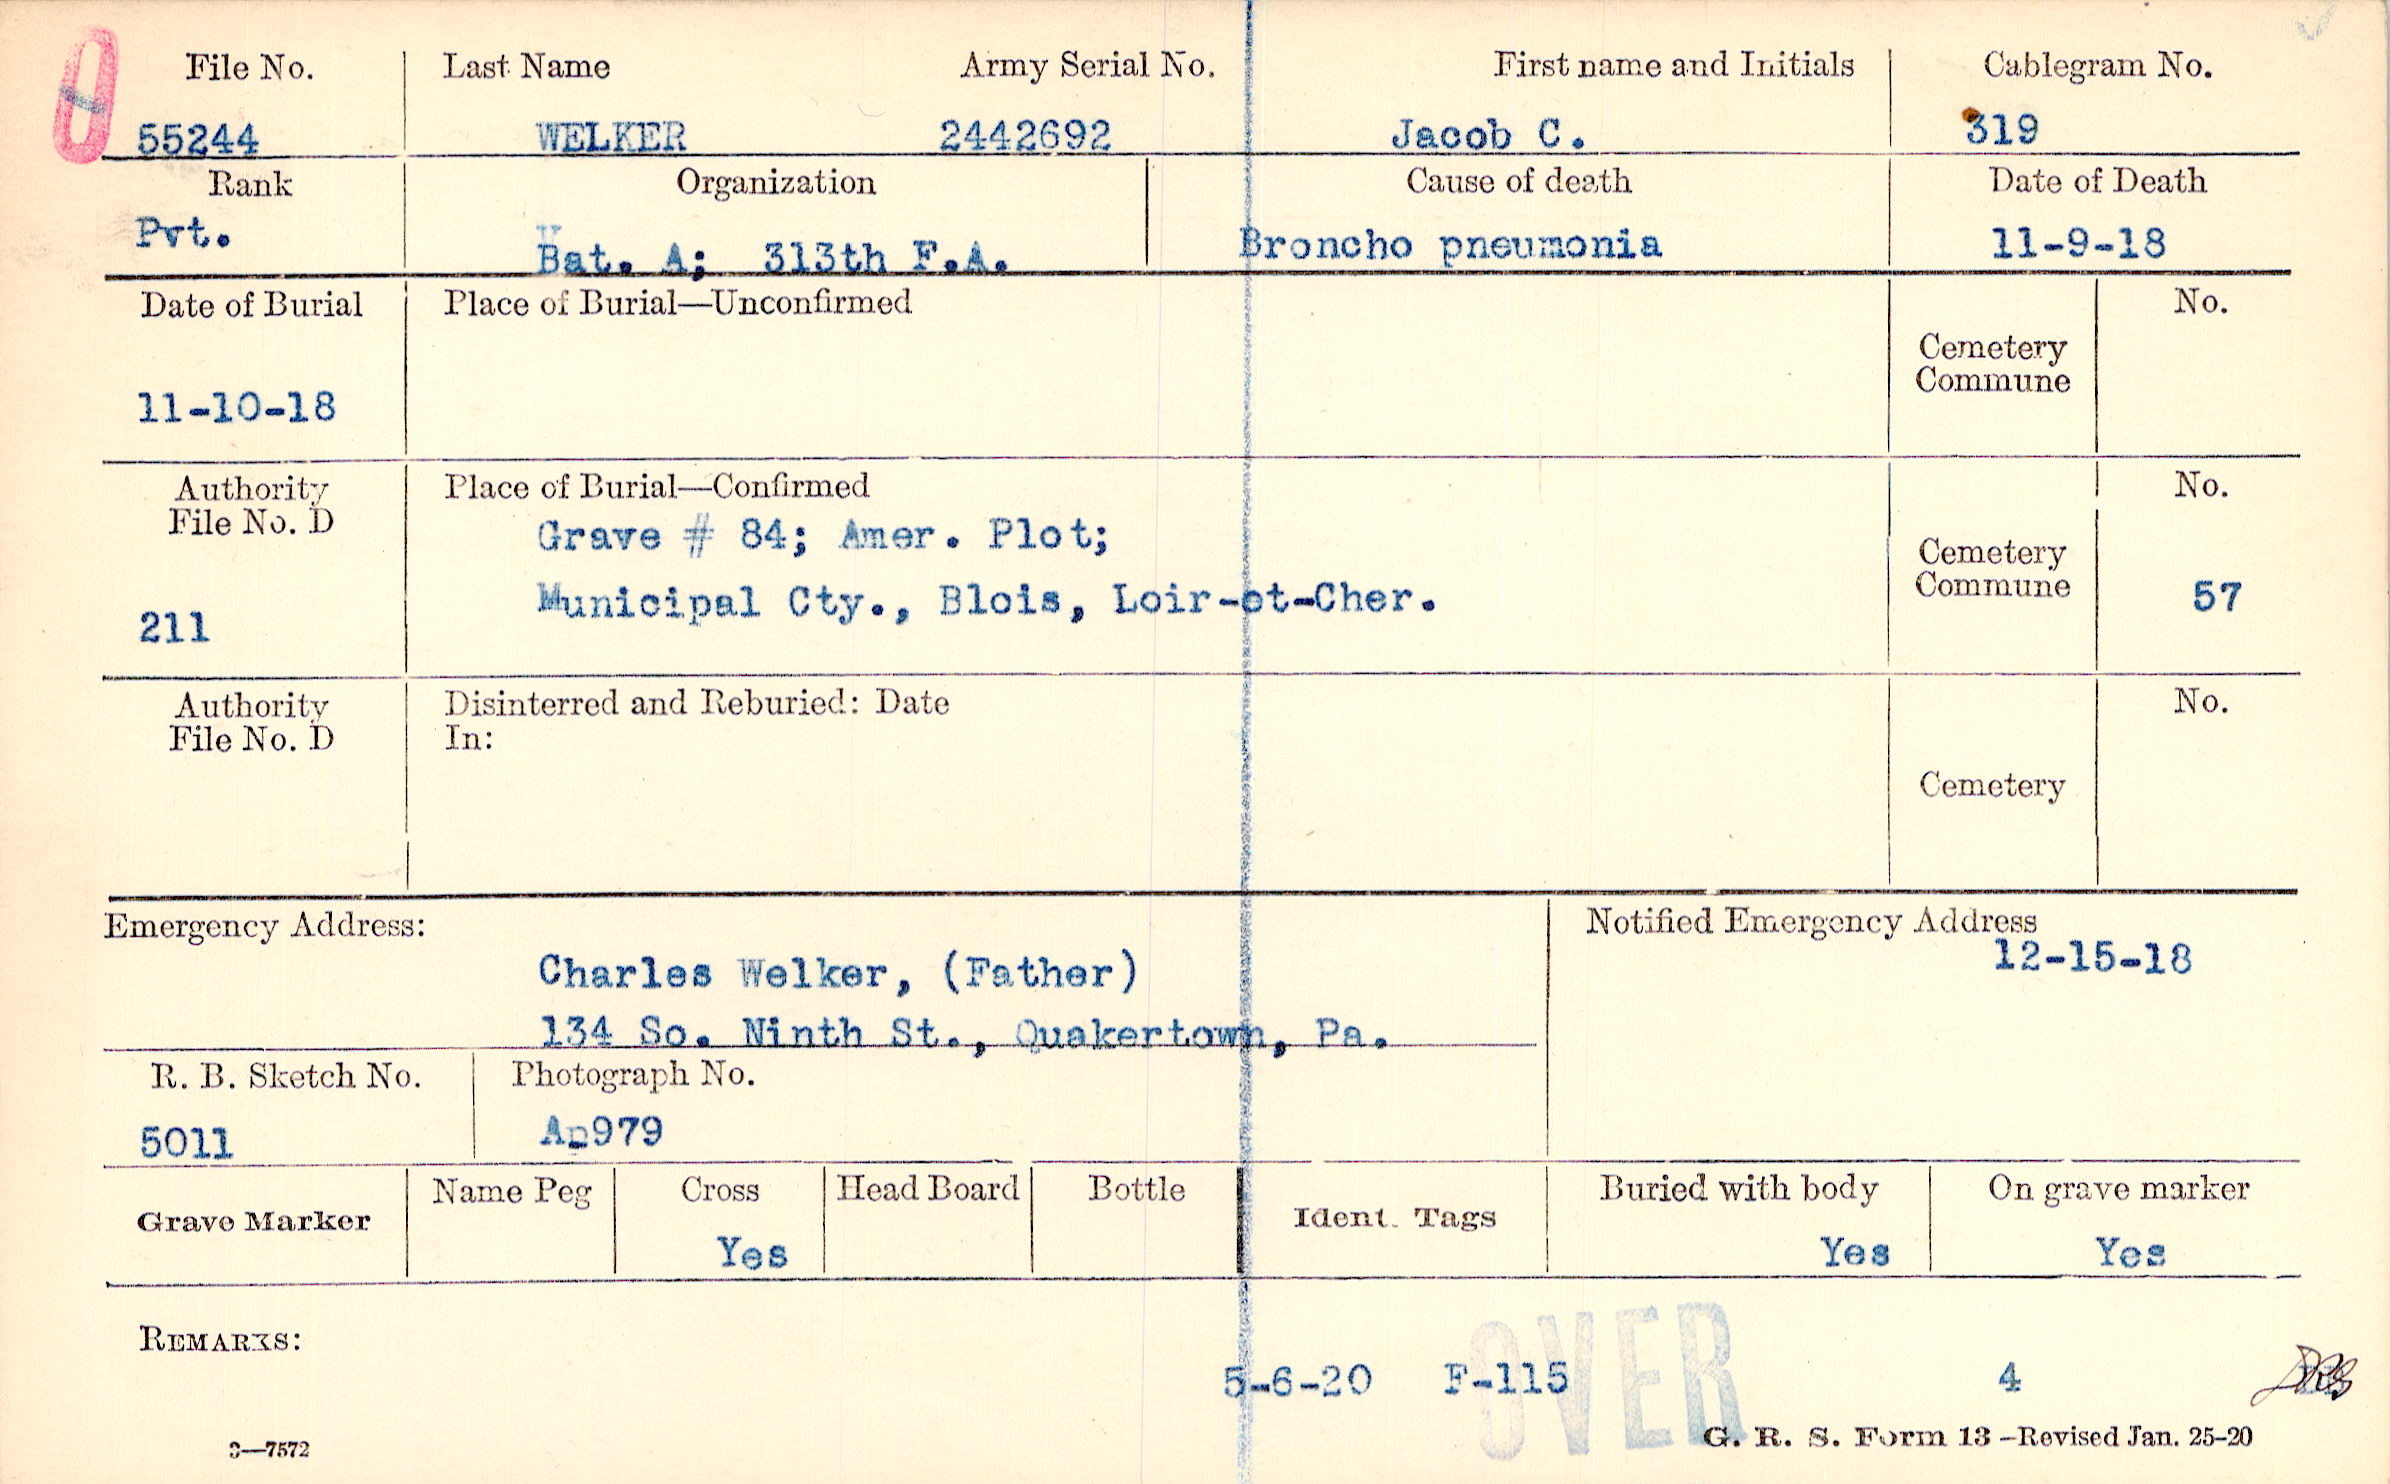 File No. Last Name Army Serial No. First name and Initials Cablegram No.
55244 WELKER 2442692 Jacob C. 319
Rank Organization Cause of death Date of Death
Pvt. Bat. A; 313th F.A. Broncho pneumonia 11-9-18
Date of Burial Place of Burial—Unconfirmed No.
Cemetery
Commune
11-10-18
Authority Place of Burial—Confirmed No.
File No. D
Grave # 84; Amer. Plot;
Cemetery
Commune
Municipal Cty., Blois, Loir-et-Cher. 57
211
Authority Disinterred and Reburied: Date No.
File No. D In:
Cemetery
Emergency Address: Notified Emergency Address
12-15-18
Charles Welker, (Father)
134 So. Ninth St., Quakertown, Pa.
R. B. Sketch No. Photograph No.
5011 Ap979
Grave Marker Name Peg Cross Head Board Bottle Ident. Tags Buried with body On grave marker
Yes Yes Yes
REMARKS:
OVER
5-6-20 F-115 4
3—7572 G. R. S. Form 13—Revised Jan. 25-20